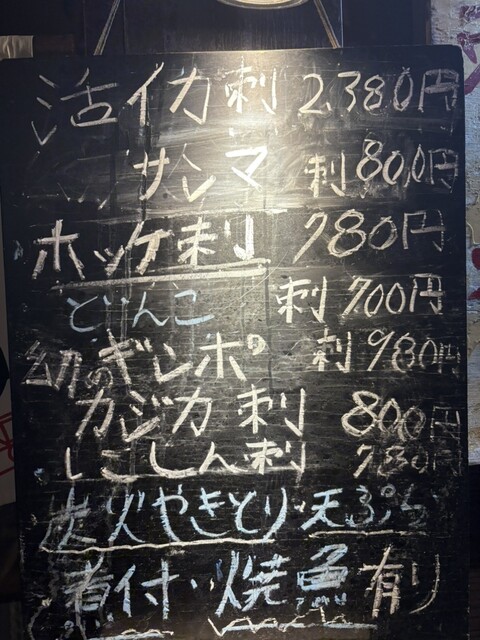 活イカ刺 2,380円
サンマ 刺 800円
ホッケ刺り 780円
どんこ 刺 700円
幻のギンポ 刺 980円
カジカ 刺 800円
しこしん刺 780円
炭火やきとり・天ぷら
煮付・焼魚有り